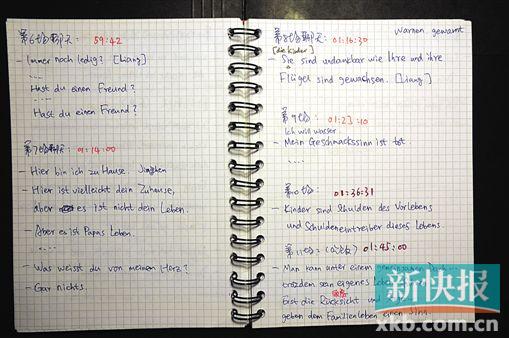 第6场聊天: 59:42
- Immer noch ledig? [Liang]
....
Hast du einen Freund?
....
Hast du einen Freund?
第7场聊天: 01:14:00
- Hier bin ich zu Hause. Jingchen
- Hier ist vielleicht dein Zuhause,
aber es ist nicht dein Leben.
- Aber es ist Papas Leben.
....
- Was weisst du von meinem Herz?
- Gar nichts.
warnen, gewarnt
第8场聊天: 01:16:30
[die Kinder]
- Sie sind undankbar wie Ihre und ihre
Flügel sind gewachsen. [Liang]
第9场: 01:23:10
Ich will wasser
- Mein Geschmackssinn ist tot.
....
第10场: 01:36:31
- Kinder sind Schulden des Vorlebens
und Schuldeneintreiber dieses Lebens.
第11场: 01:45:00
- Man kann unter einem gemeinsamen Dach
trotzdem sein eigenes
Erst die Rücksicht und
geben dem Familienleben einen Sinn.
新快报
xkb.com.cn